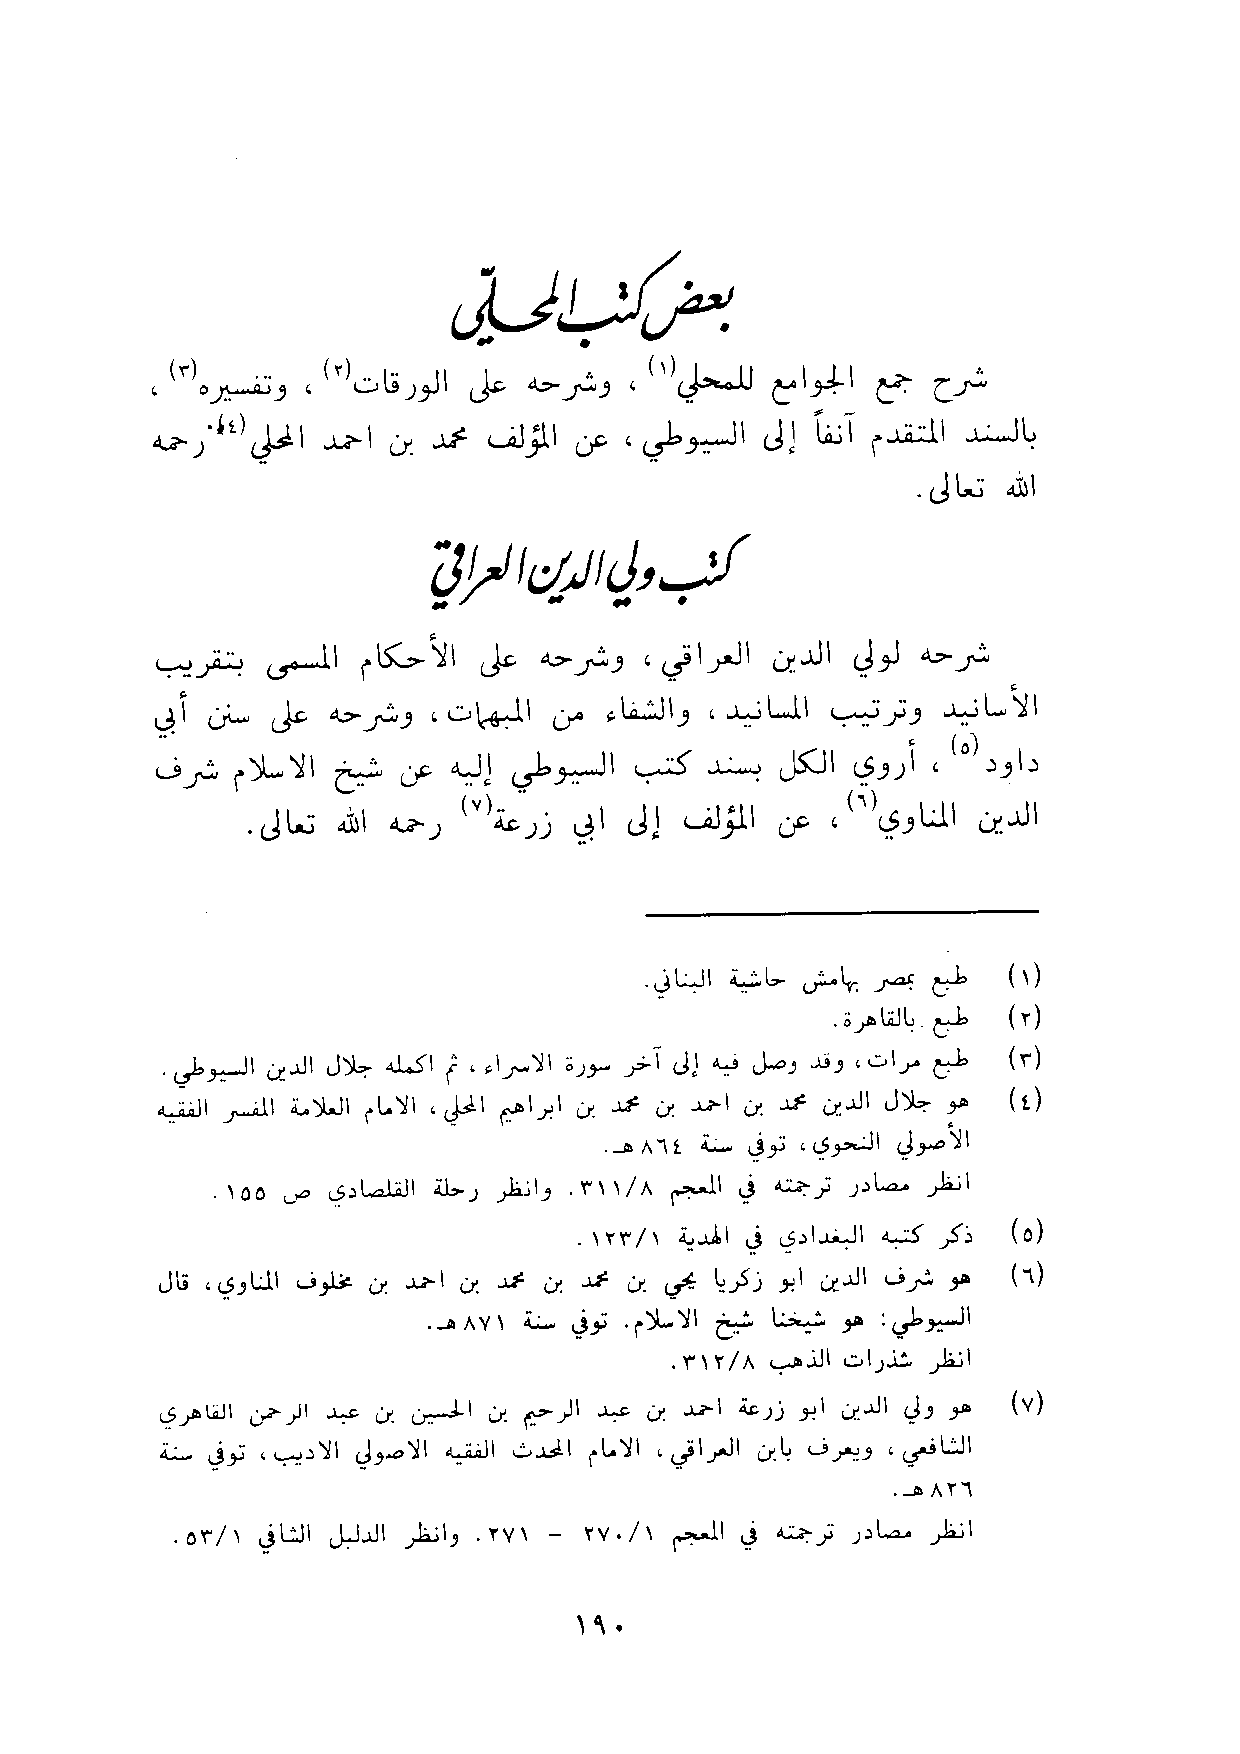 بعض كتب المحلّي
شرح جمع الجوامع للمحلي(١) ، وشرحه على الورقات(٢) ، وتفسيره(٣) ،
بالسند المتقدم آنفاً إلى السيوطي ، عن المؤلف محمد بن احمد المحلي(٤) رحمه
الله تعالى.
كتب ولي الدين العراقي
شرحه لولي الدين العراقي ، وشرحه على الأحكام المسمى بتقريب
الأسانيد وترتيب المسانيد ، والشفاء من المبهمات ، وشرحه على سنن أبي
داود(٥) ، أروي الكل بسند كتب السيوطي إليه عن شيخ الاسلام شرف
الدين المناوي(٦) ، عن المؤلف إلى ابي زرعة(٧) رحمه الله تعالى.
(١) طبع بمصر بهامش حاشية البناني.
(٢) طبع بالقاهرة.
(٣) طبع مرات ، وقد وصل فيه إلى آخر سورة الاسراء ، ثم اكمله جلال الدين السيوطي.
(٤) هو جلال الدين محمد بن احمد بن محمد بن ابراهيم المحلي ، الامام العلامة المفسر الفقيه
الأصولي النحوي ، توفي سنة ٨٦٤ هـ.
انظر مصادر ترجمته في المعجم ٣١١/٨. وانظر رحلة القلصادي ص ١٥٥.
(٥) ذكر كتبه البغدادي في الهدية ١٢٣/١.
(٦) هو شرف الدين ابو زكريا يحيي بن محمد بن محمد بن احمد بن مخلوف المناوي ، قال
السيوطي: هو شيخنا شيخ الاسلام. توفي سنة ٨٧١ هـ.
انظر شذرات الذهب ٣١٢/٨.
(٧) هو ولي الدين ابو زرعة احمد بن عبد الرحيم بن الحسين بن عبد الرحمن القاهري
الشافعي ، ويعرف بابن العراقي ، الامام المحدث الفقيه الاصولي الاديب ، توفي سنة
٨٢٦ هـ.
انظر مصادر ترجمته في المعجم ٢٧٠/١ - ٢٧١. وانظر الدليل الشافي ٥٣/١.
١٩٠